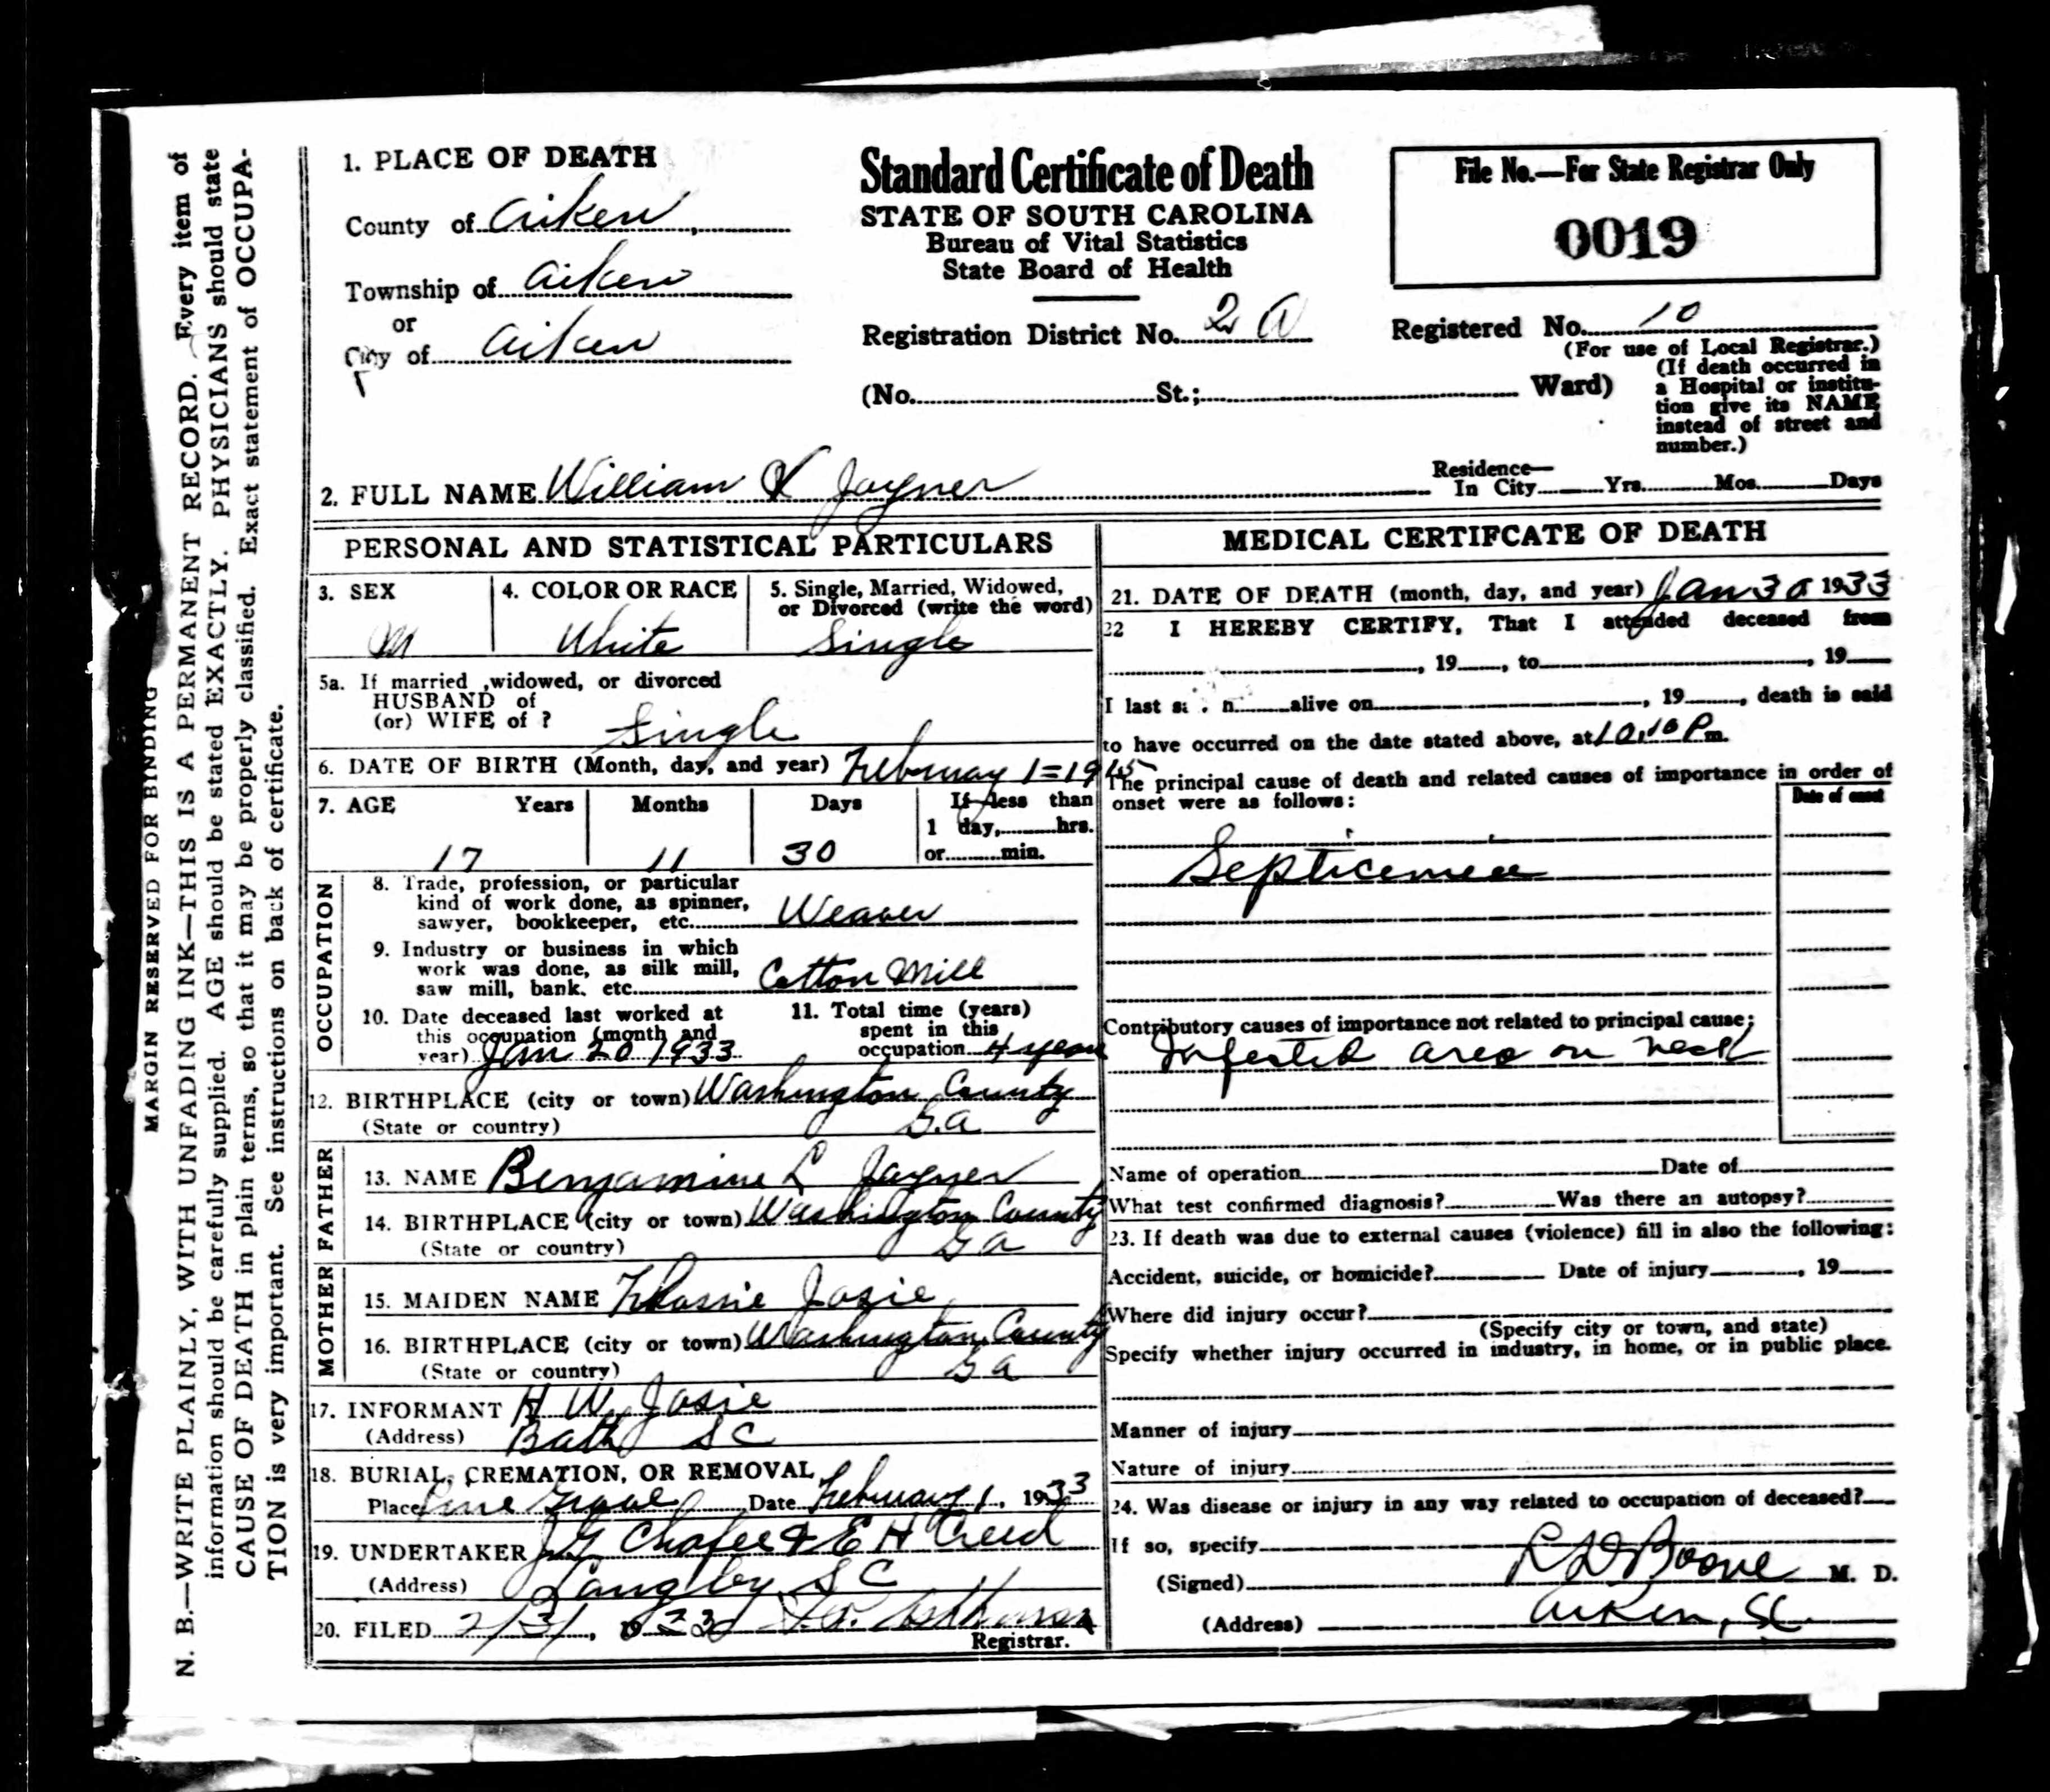 1. PLACE OF DEATH
County of Aiken
Township of Aiken
or
City of Aiken
Standard Certificate of Death
STATE OF SOUTH CAROLINA
Bureau of Vital Statistics
State Board of Health
Registration District No. 2 A
(No. St.; Ward)
File No.—For State Registrar Only
0019
Registered No. 10
(For use of Local Registrar.)
(If death occurred in
a Hospital or institu-
tion give its NAME
instead of street and
number.)
2. FULL NAME William Joyner
Residence—
In City Yrs. Mos. Days
PERSONAL AND STATISTICAL PARTICULARS
3. SEX
M
4. COLOR OR RACE
White
5. Single, Married, Widowed,
or Divorced (write the word)
Single
5a. If married ,widowed, or divorced
HUSBAND of
(or) WIFE of ?
Single
6. DATE OF BIRTH (Month, day, and year) February 1=1915
7. AGE Years Months Days If less than
1 day, hrs.
or min.
17 11 30
OCCUPATION
8. Trade, profession, or particular
kind of work done, as spinner,
sawyer, bookkeeper, etc. Weaver
9. Industry or business in which
work was done, as silk mill,
saw mill, bank. etc. Cotton Mill
10. Date deceased last worked at
this occupation (month and
year) Jan 20 1933
11. Total time (years)
spent in this
occupation 4 years
12. BIRTHPLACE (city or town) Washington County
(State or country) Ga
FATHER
13. NAME Benjamine L Joyner
14. BIRTHPLACE (city or town) Washington County
(State or country) Ga
MOTHER
15. MAIDEN NAME Josie
16. BIRTHPLACE (city or town) Washington County
(State or country) Ga
17. INFORMANT H W Josie
(Address) Bath S C
18. BURIAL, CREMATION, OR REMOVAL
Place Date February 1, 1933
19. UNDERTAKER J G Chafee & E H Creed
(Address) Langley S C
20. FILED 2/3/, 1933
Registrar.
MEDICAL CERTIFCATE OF DEATH
21. DATE OF DEATH (month, day, and year) Jan 30 1933
22 I HEREBY CERTIFY, That I attended deceased from
, 19 , to , 19
I last s n alive on , 19 , death is said
to have occurred on the date stated above, at 10.10 P m.
The principal cause of death and related causes of importance in order of
onset were as follows:
Date of onset
Septicemea
Contributory causes of importance not related to principal cause:
Infected area on neck
Name of operation Date of
What test confirmed diagnosis? Was there an autopsy?
23. If death was due to external causes (violence) fill in also the following:
Accident, suicide, or homicide? Date of injury , 19
Where did injury occur?
(Specify city or town, and state)
Specify whether injury occurred in industry, in home, or in public place.
Manner of injury
Nature of injury
24. Was disease or injury in any way related to occupation of deceased?
If so, specify
(Signed) Boone M. D.
(Address) Aiken, SC
MARGIN RESERVED FOR BINDING
N. B.—WRITE PLAINLY, WITH UNFADING INK—THIS IS A PERMANENT RECORD. Every item of
information should be carefully supplied. AGE should be stated EXACTLY. PHYSICIANS should state
CAUSE OF DEATH in plain terms, so that it may be properly classified. Exact statement of OCCUPA-
TION is very important. See instructions on back of certificate.